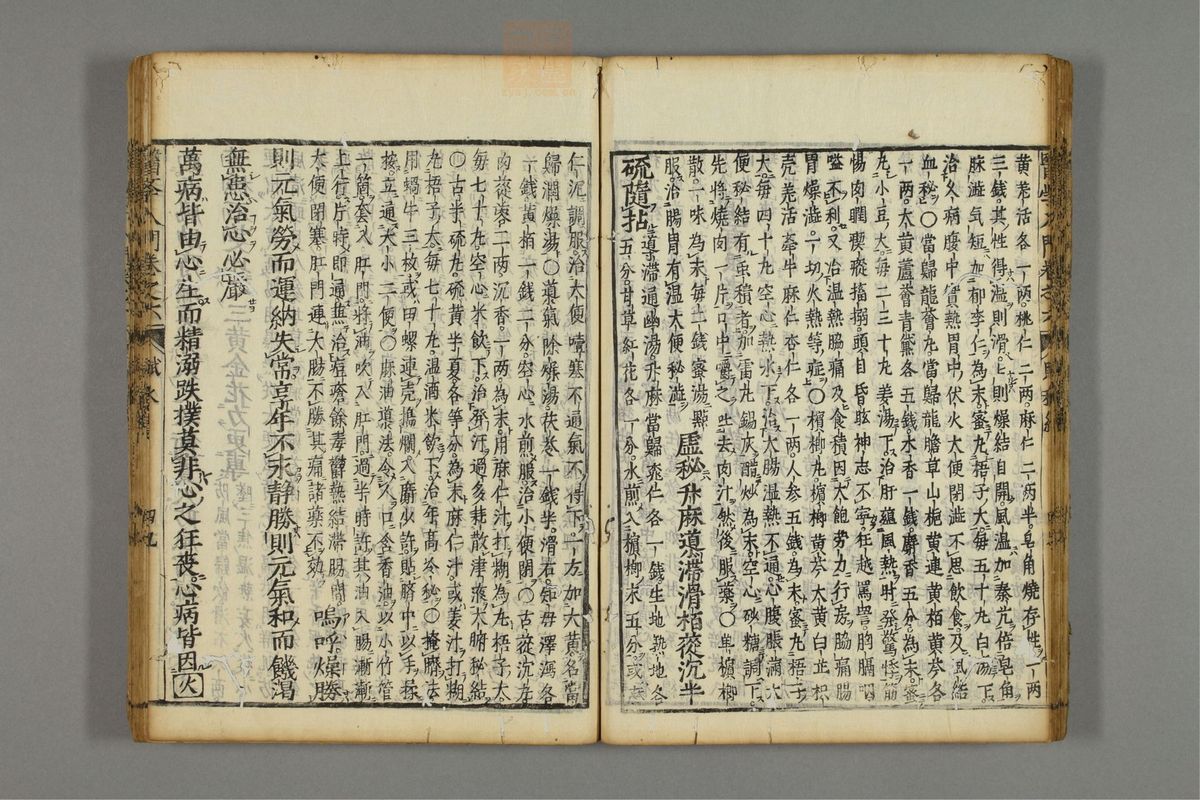 黄芪活各一両桃仁二両麻仁二両半皂角燒存性一両
三錢其性得溫則滑上則燥結自開風溫加秦艽倍皂角
脉澁気短加郁李仁為末蜜丸梧子大毎五十丸白湯下
治久病腹中實熱胃中伏火大便閉澁不思飲食及風結
血秘〇當歸龍薈丸當歸龍膽草山梔黄連黄栢黄芩各
一両大黄蘆薈青黛各五錢木香一錢麝香五分為末蜜
丸小豆大毎二三十丸姜湯下治肝蘊風熱時發驚悸筋
惕肉瞤瘈瘲搐搦頭目昏眩神志不寧狂越罵詈胸膈咽
嗌不利又治溫熱脇痛及食積因大飽勞力行房脇痛腸
胃燥澁一切火熱等症〇檳榔丸檳榔黄芩大黄白芷枳
壳羗活牽牛麻仁杏仁各一両人参五錢為末蜜丸梧子
大毎四十丸空心熱水下治大腸溫熱不通心腹脹満大
便秘結有虫積者加雷丸錫灰醋炒為末空心砂糖調下
先將燒肉一片口中嚼之吐去肉汁然後服藥〇単檳榔
散一味為末毎二錢蜜湯點
服治腸胃有溫大便秘澁
虚秘升麻道滯滑栢蓯沉半
硫隨拈
道滯通幽湯升麻當歸桃仁各一錢生地熟地各
五分甘草紅花各一分水煎入檳榔末五分或去
仁沉調服治大便嗜塞不通氣不得下一方加大黄名當
歸潤燥湯〇道氣除燥湯茯苓一錢半滑石知母澤瀉各
一錢黄栢一錢二分空心水煎服治小便閉〇古蓯沉丸
肉蓯蓉二両沉香一両為末用麻仁汁打糊為丸梧子大
毎七十丸空心米飲下治発汗過多耗散津液大腑秘結
〇古半硫丸硫黄半夏各等分為末麻仁汁或姜汁打糊
丸梧子大毎七十丸溫酒米飲下治年高冷秘〇掩臍法
用蝸牛三枚或田螺連壳搗爛入麝少許貼臍中以手揉
按立通大小二便〇麻油道法令人口含香油以小竹管
一筒套入肛門將油吹入肛門過半時許其油入腸漸漸
上行片時即通
大便閉塞肛門連大腸不勝其痛諸藥不効
嗚呼燥勝
則元氣勞而運納失常亭年不永靜勝則元氣和而饑渇
無患治心必嚴
萬病皆由心生而精溺跌撲莫非心之狂喪心病皆因火